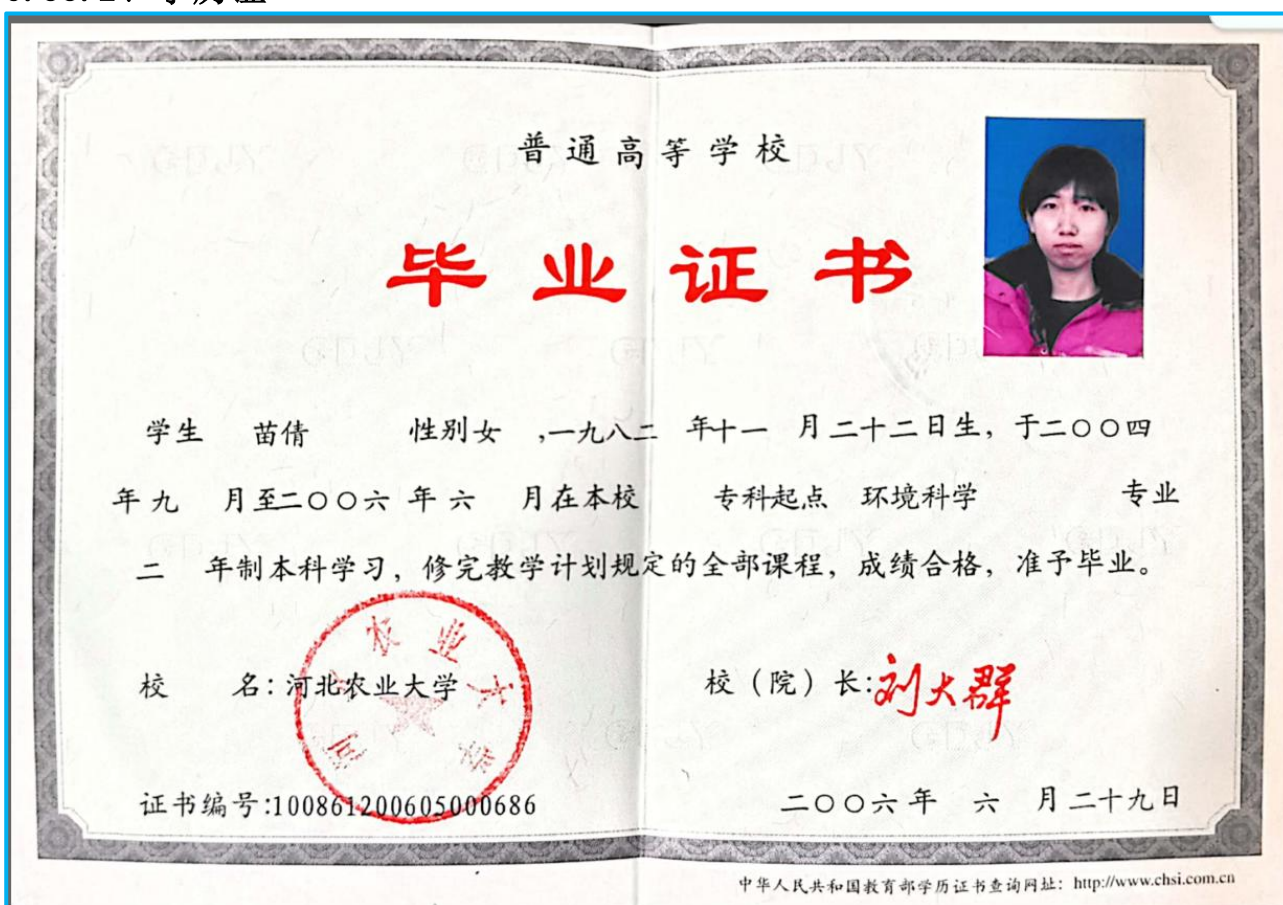 普通高等学校
毕业证书
学生 苗倩 性别女 ,一九八二 年十一 月二十二日生，于二〇〇四
年九 月至二〇〇六 年六 月在本校 专科起点 环境科学 专业
二 年制本科学习，修完教学计划规定的全部课程，成绩合格，准予毕业。
河北农业大学
校 名:河北农业大学 校（院）长:刘大群
证书编号:100861200605000686 二〇〇六年 六 月二十九日
中华人民共和国教育部学历证书查询网址: http://www.chsi.com.cn